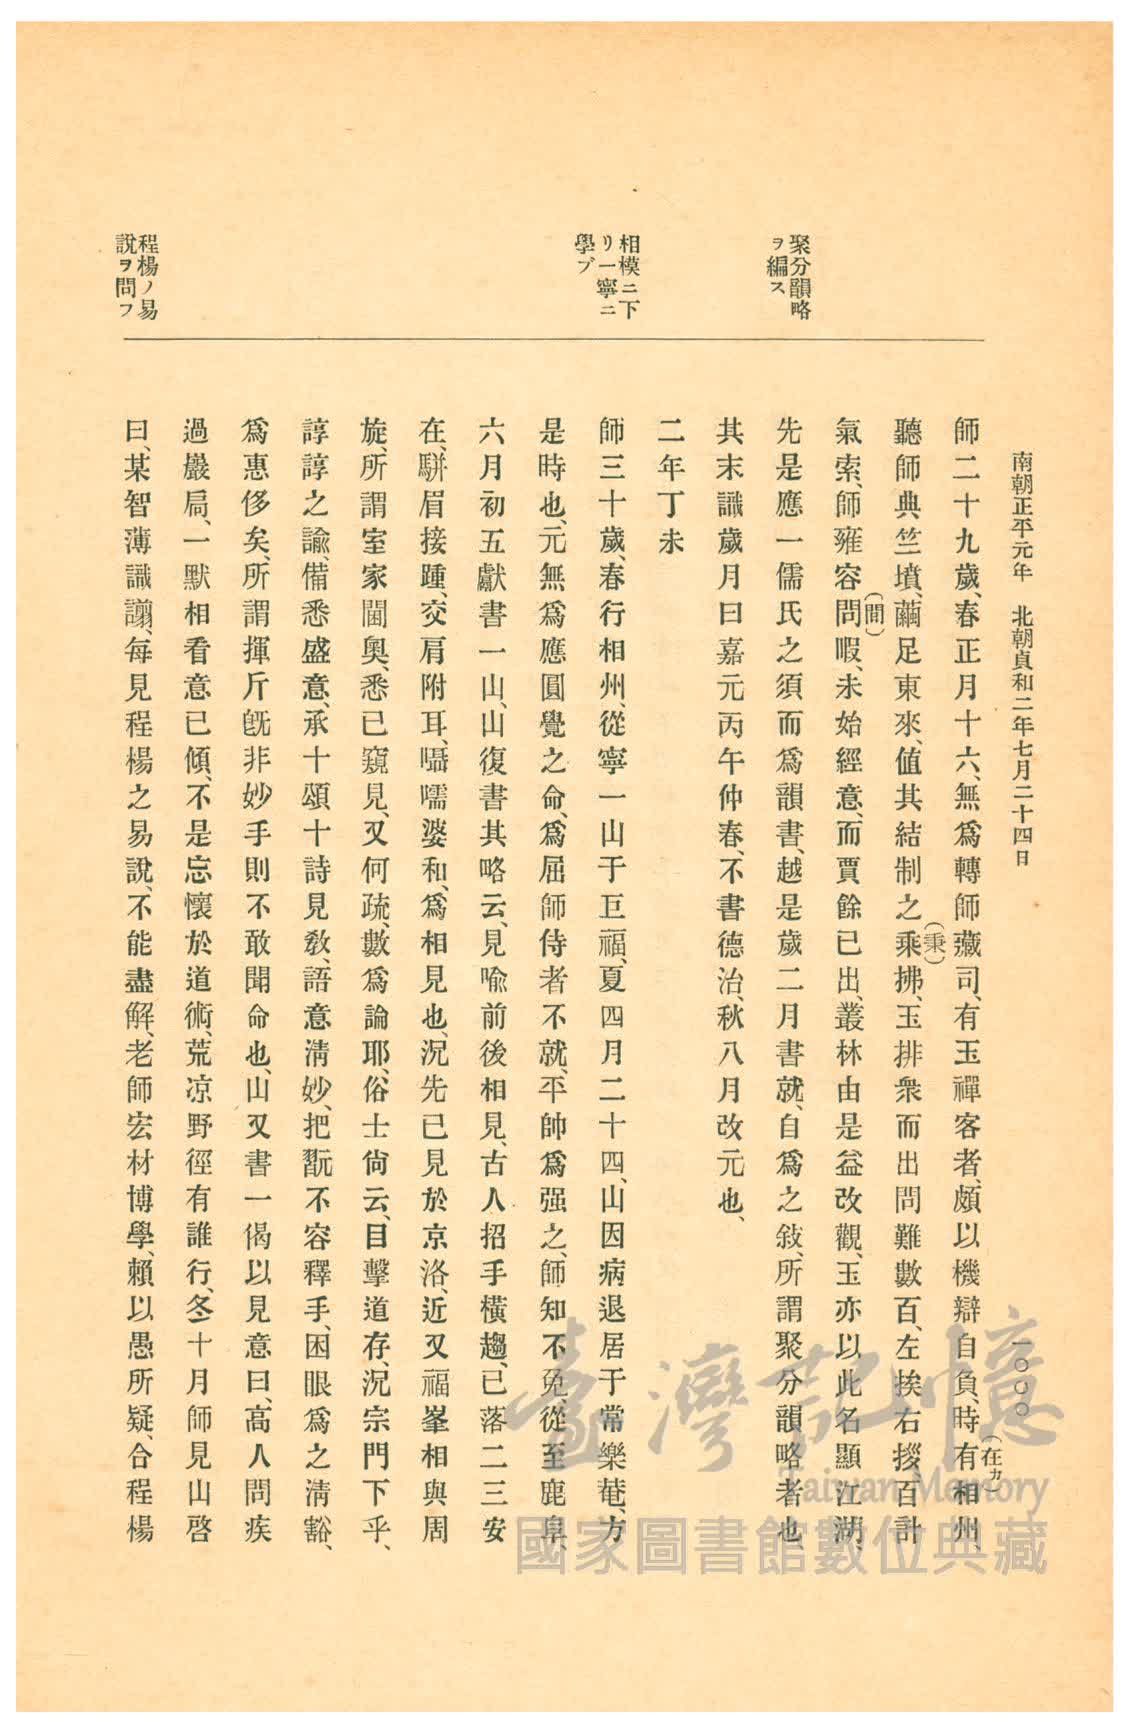 南朝正平元年 北朝貞和二年七月二十四日
一〇〇〇
聚分韻略
ヲ編ス
相模ニ下
リ一寧ニ
學ブ
程楊ノ易
說ヲ問フ
師二十九歲、春正月十六、無爲轉師藏司、有玉禪客者、頗以機辯自負、時有(在カ)相州、
聽師典竺墳、繭足東來、值其結制之乘(秉)拂、玉排衆而出問難數百、左挨右拶、百計
氣索、師雍容問(間)暇、未始經意、而賈餘已出、叢林由是益改觀、玉亦以此名顯江湖、
先是應一儒氏之須而爲韻書、越是歲二月書就、自爲之敍、所謂聚分韻略者也、
其末識歲月曰嘉元丙午仲春、不書德治、秋八月改元也、
二年丁未
師三十歲、春行相州、從寧一山于巨福、夏四月二十四、山因病退居于常樂菴、方
是時也、元無爲應圓覺之命、爲屈師侍者不就、平帥爲强之、師知不免、從至鹿阜、
六月初五獻書一山、山復書其略云、見喩前後相見、古人招手橫趨、已落二三安
在、駢眉接踵、交肩附耳、囁嚅婆和、爲相見也、況先已見於京洛、近又福峯相與周
旋、所謂室家閫奧、悉已窺見、又何疏、數爲論耶、俗士尙云、目擊道存、況宗門下乎、
諄諄之諭、備悉盛意、承十頌十詩見敎、語意淸妙、把翫不容釋手、困眼爲之淸豁、
爲惠侈矣、所謂揮斤旣非妙手則不敢聞命也、山又書一偈以見意曰、高人問疾
過巖扃、一默相看意已傾、不是忘懷於道術、荒凉野徑有誰行、冬十月師見山啓
曰、某智薄識謭、每見程楊之易說、不能盡解、老師宏材博學、賴以愚所疑、合程楊
臺灣記憶
Taiwan Memory
國家圖書館數位典藏